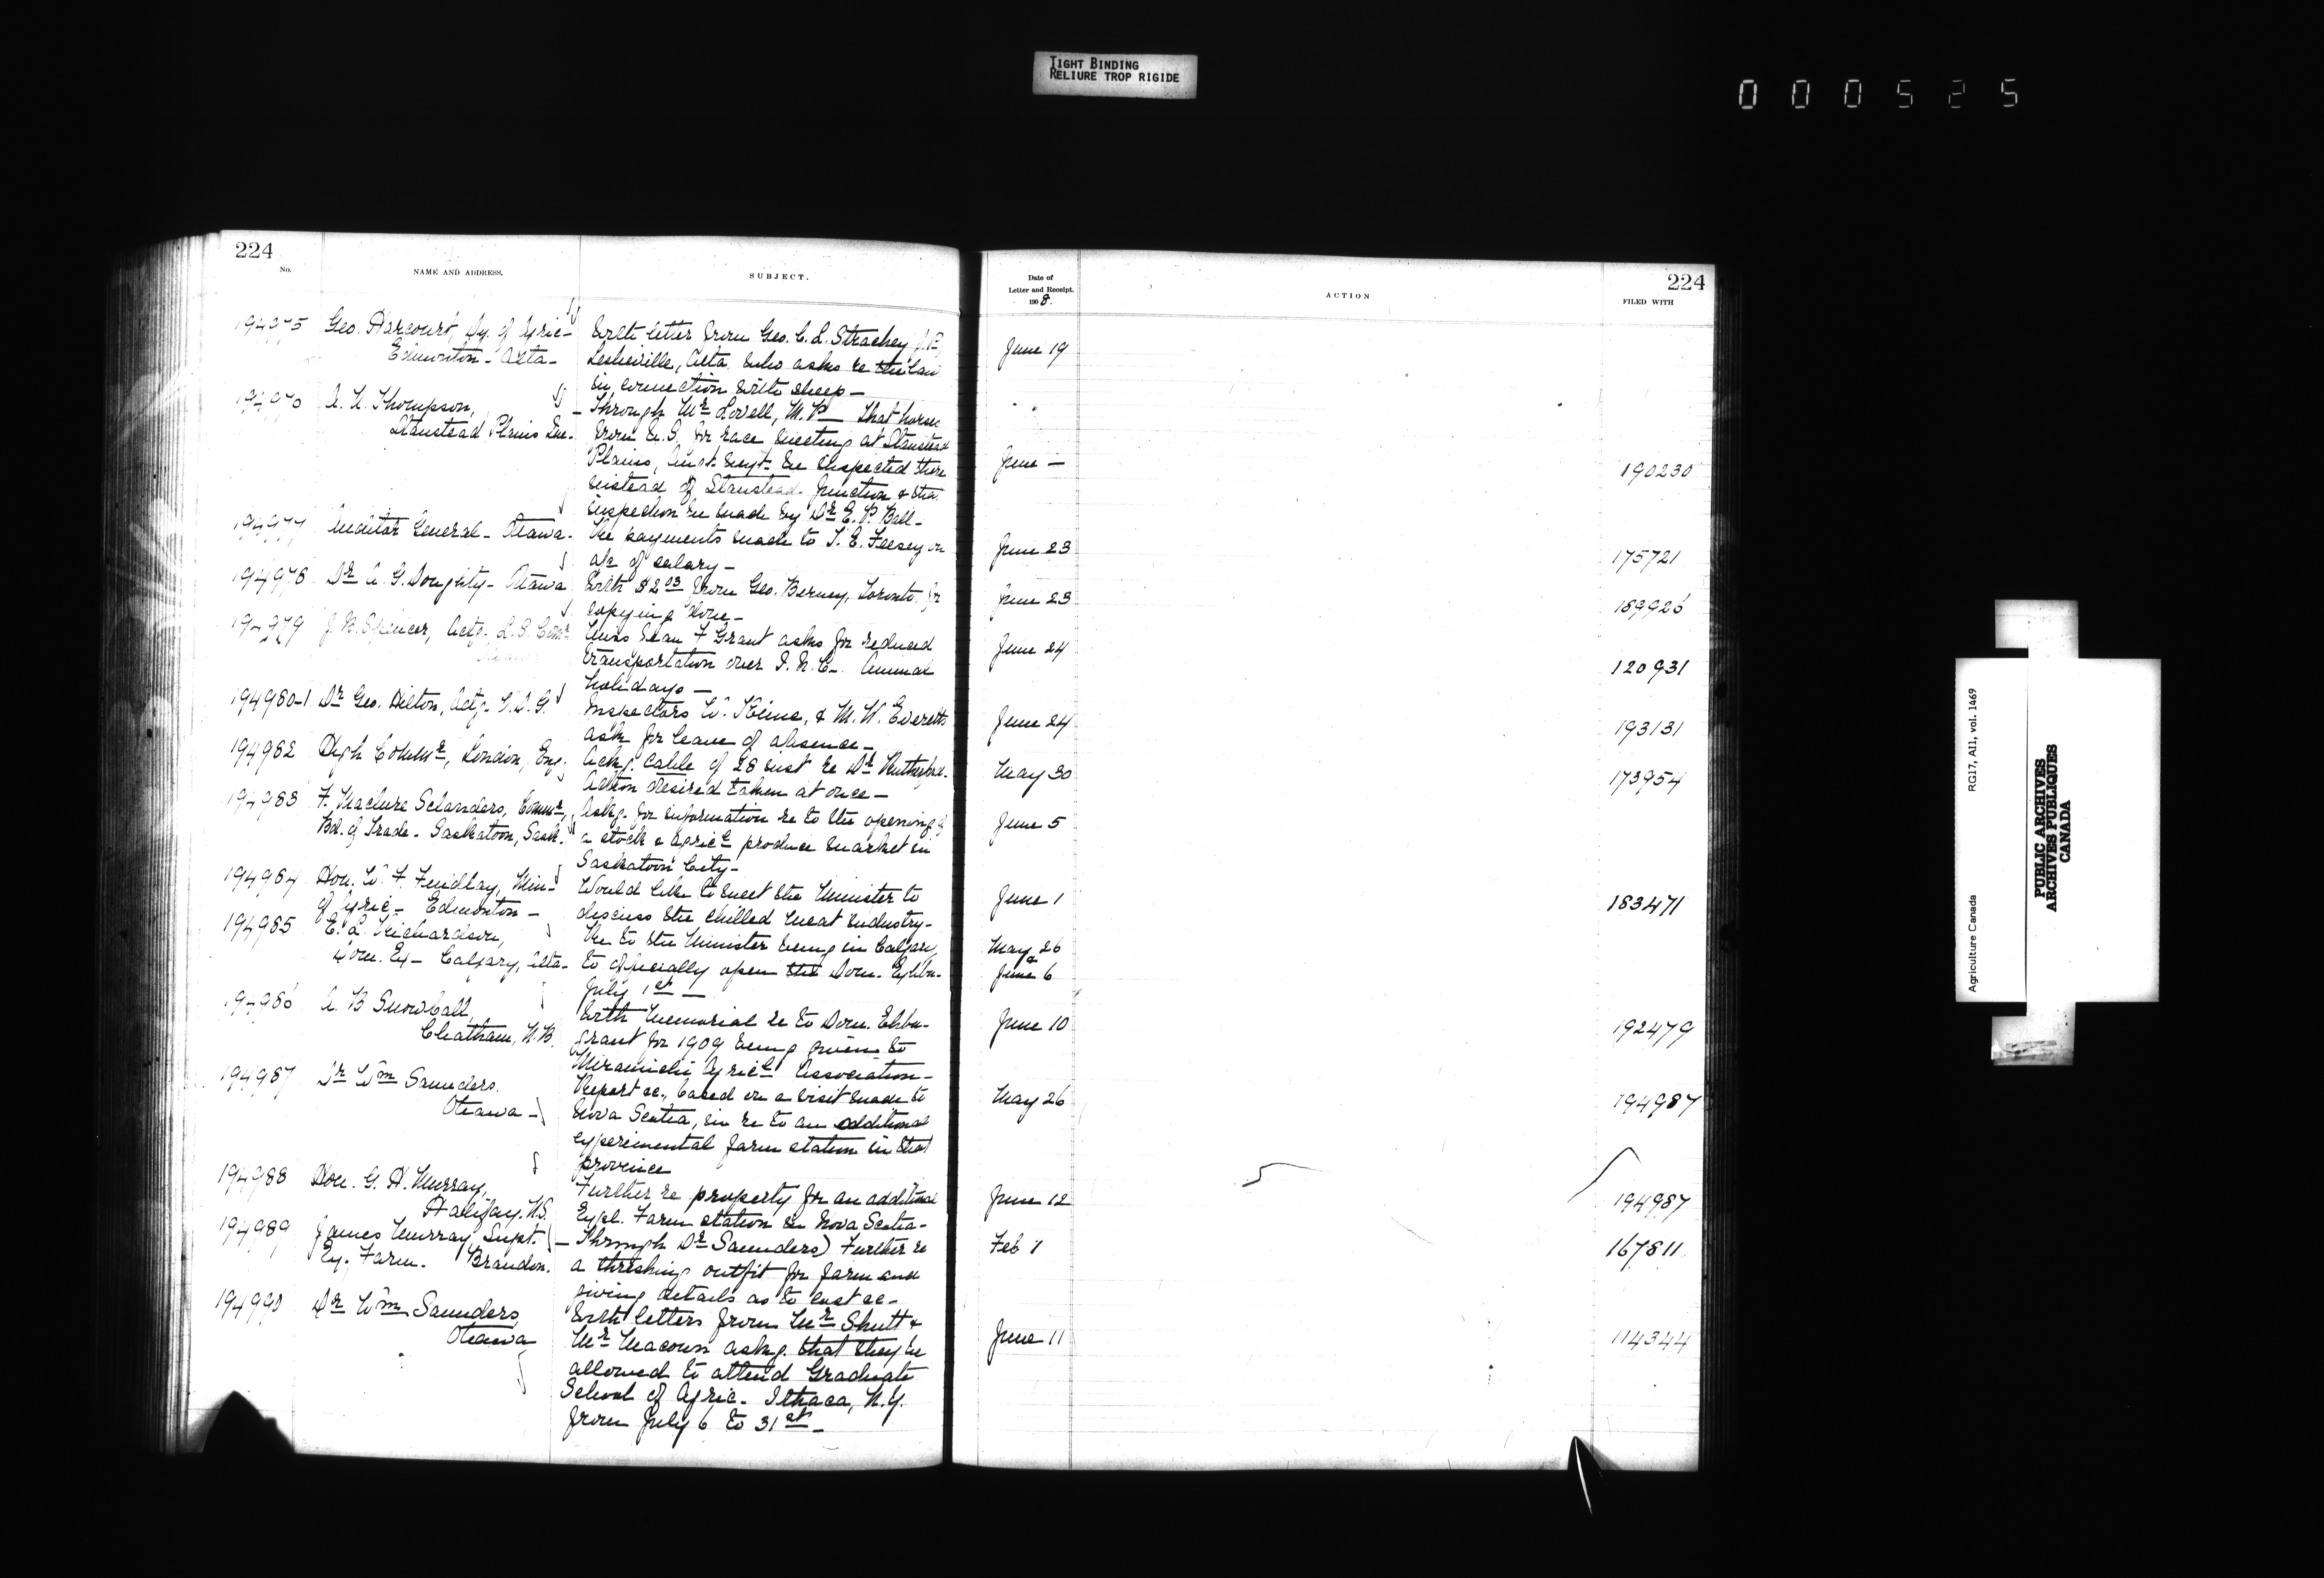 TIGHT BINDING
RELIURE TROP RIGIDE
000525
224
No.
NAME AND ADDRESS.
SUBJECT.
Date of
Letter and Receipt.
1908.
ACTION
224
FILED WITH
194975 Geo. Harcourt, Dy. of Agric- With letter from Geo. C. L. Strachey, J.P. June 19
Edmonton - Alta- Leslieville, Alta. who asks re the law
in connection with sheep-
A. N. Thompson, - Through Mr Lovell, M.P- that horses
Stanstead Plains Que. from U.S. for race meeting at Stanstead
Plains, inst. be inspected there June - 190230
instead of Stanstead Junction & the
inspection be made by Dr E. P. Ball-
194977 Auditor General - Ottawa. Re payments made to T. E. Feesey on June 23 175721
a/c of salary-
194978 Dr A. G. Doughty - Ottawa With $2.03 from Geo. Berney, Toronto for June 23 189926
copying done-
194979 J. B. Spencer, Actg. L.S. Comr. Miss Jean F Grant asks for reduced June 24
transportation over I.R.C- Annual 120931
holidays-
194980-1 Dr Geo. Hilton, Actg. V.D.G. Inspectors W. Kime, & M. W. Everetts June 24 193131
ask for leave of absence-
194982 High Commr, London, Eng. Ackg. cable of 28 inst re Dr Rutherford. May 30 173954
Action desired taken at once-
194983 F. Maclure Sclanders, Commr, Askg. for information re to the opening of June 5
Bd. of Trade - Saskatoon, Sask. a stock & agricl produce market in
Saskatoon City-
194984 Hon. W. F. Findlay, Min- Would like to meet the Minister to June 1 183471
of Agric- Edmonton- discuss the chilled meat industry-
194985 E. L. Richardson, Re to the Minister being in Calgary May 26
Dom. Ex- Calgary, Alta- to officially open the Dom. Exhbn. & June 6
July 1st-
194986 A. B Snowball, With Memorial re to Dom. Exhbn. June 10 192479
Chatham, N.B. Grant for 1909 being given to
Miramichi Agricl Association-
194987 Dr Wm Saunders. Report &c., based on a visit made to May 26 194987
Ottawa- Nova Scotia, in re to an additional
experimental farm station in that
province
194988 Hon. G. H. Murray, Further re property for an additional June 12 194987
Halifax. N.S. Expl. Farm station in Nova Scotia-
194989 James Murray Supt. - Through Dr Saunders) Further re Feb 7 167811
Ex. Farm. Brandon. a threshing outfit for farm and
giving details as to cost &c-
194990 Dr Wm Saunders, With letters from Mr Shutt &
Ottawa Mr Macoun askg. that they be June 11 114344
allowed to attend Graduate
School of Agric. Ithaca, N.Y.
from July 6 to 31st-
Agriculture Canada
RG17, A11, vol. 1469
PUBLIC ARCHIVES
ARCHIVES PUBLIQUES
CANADA